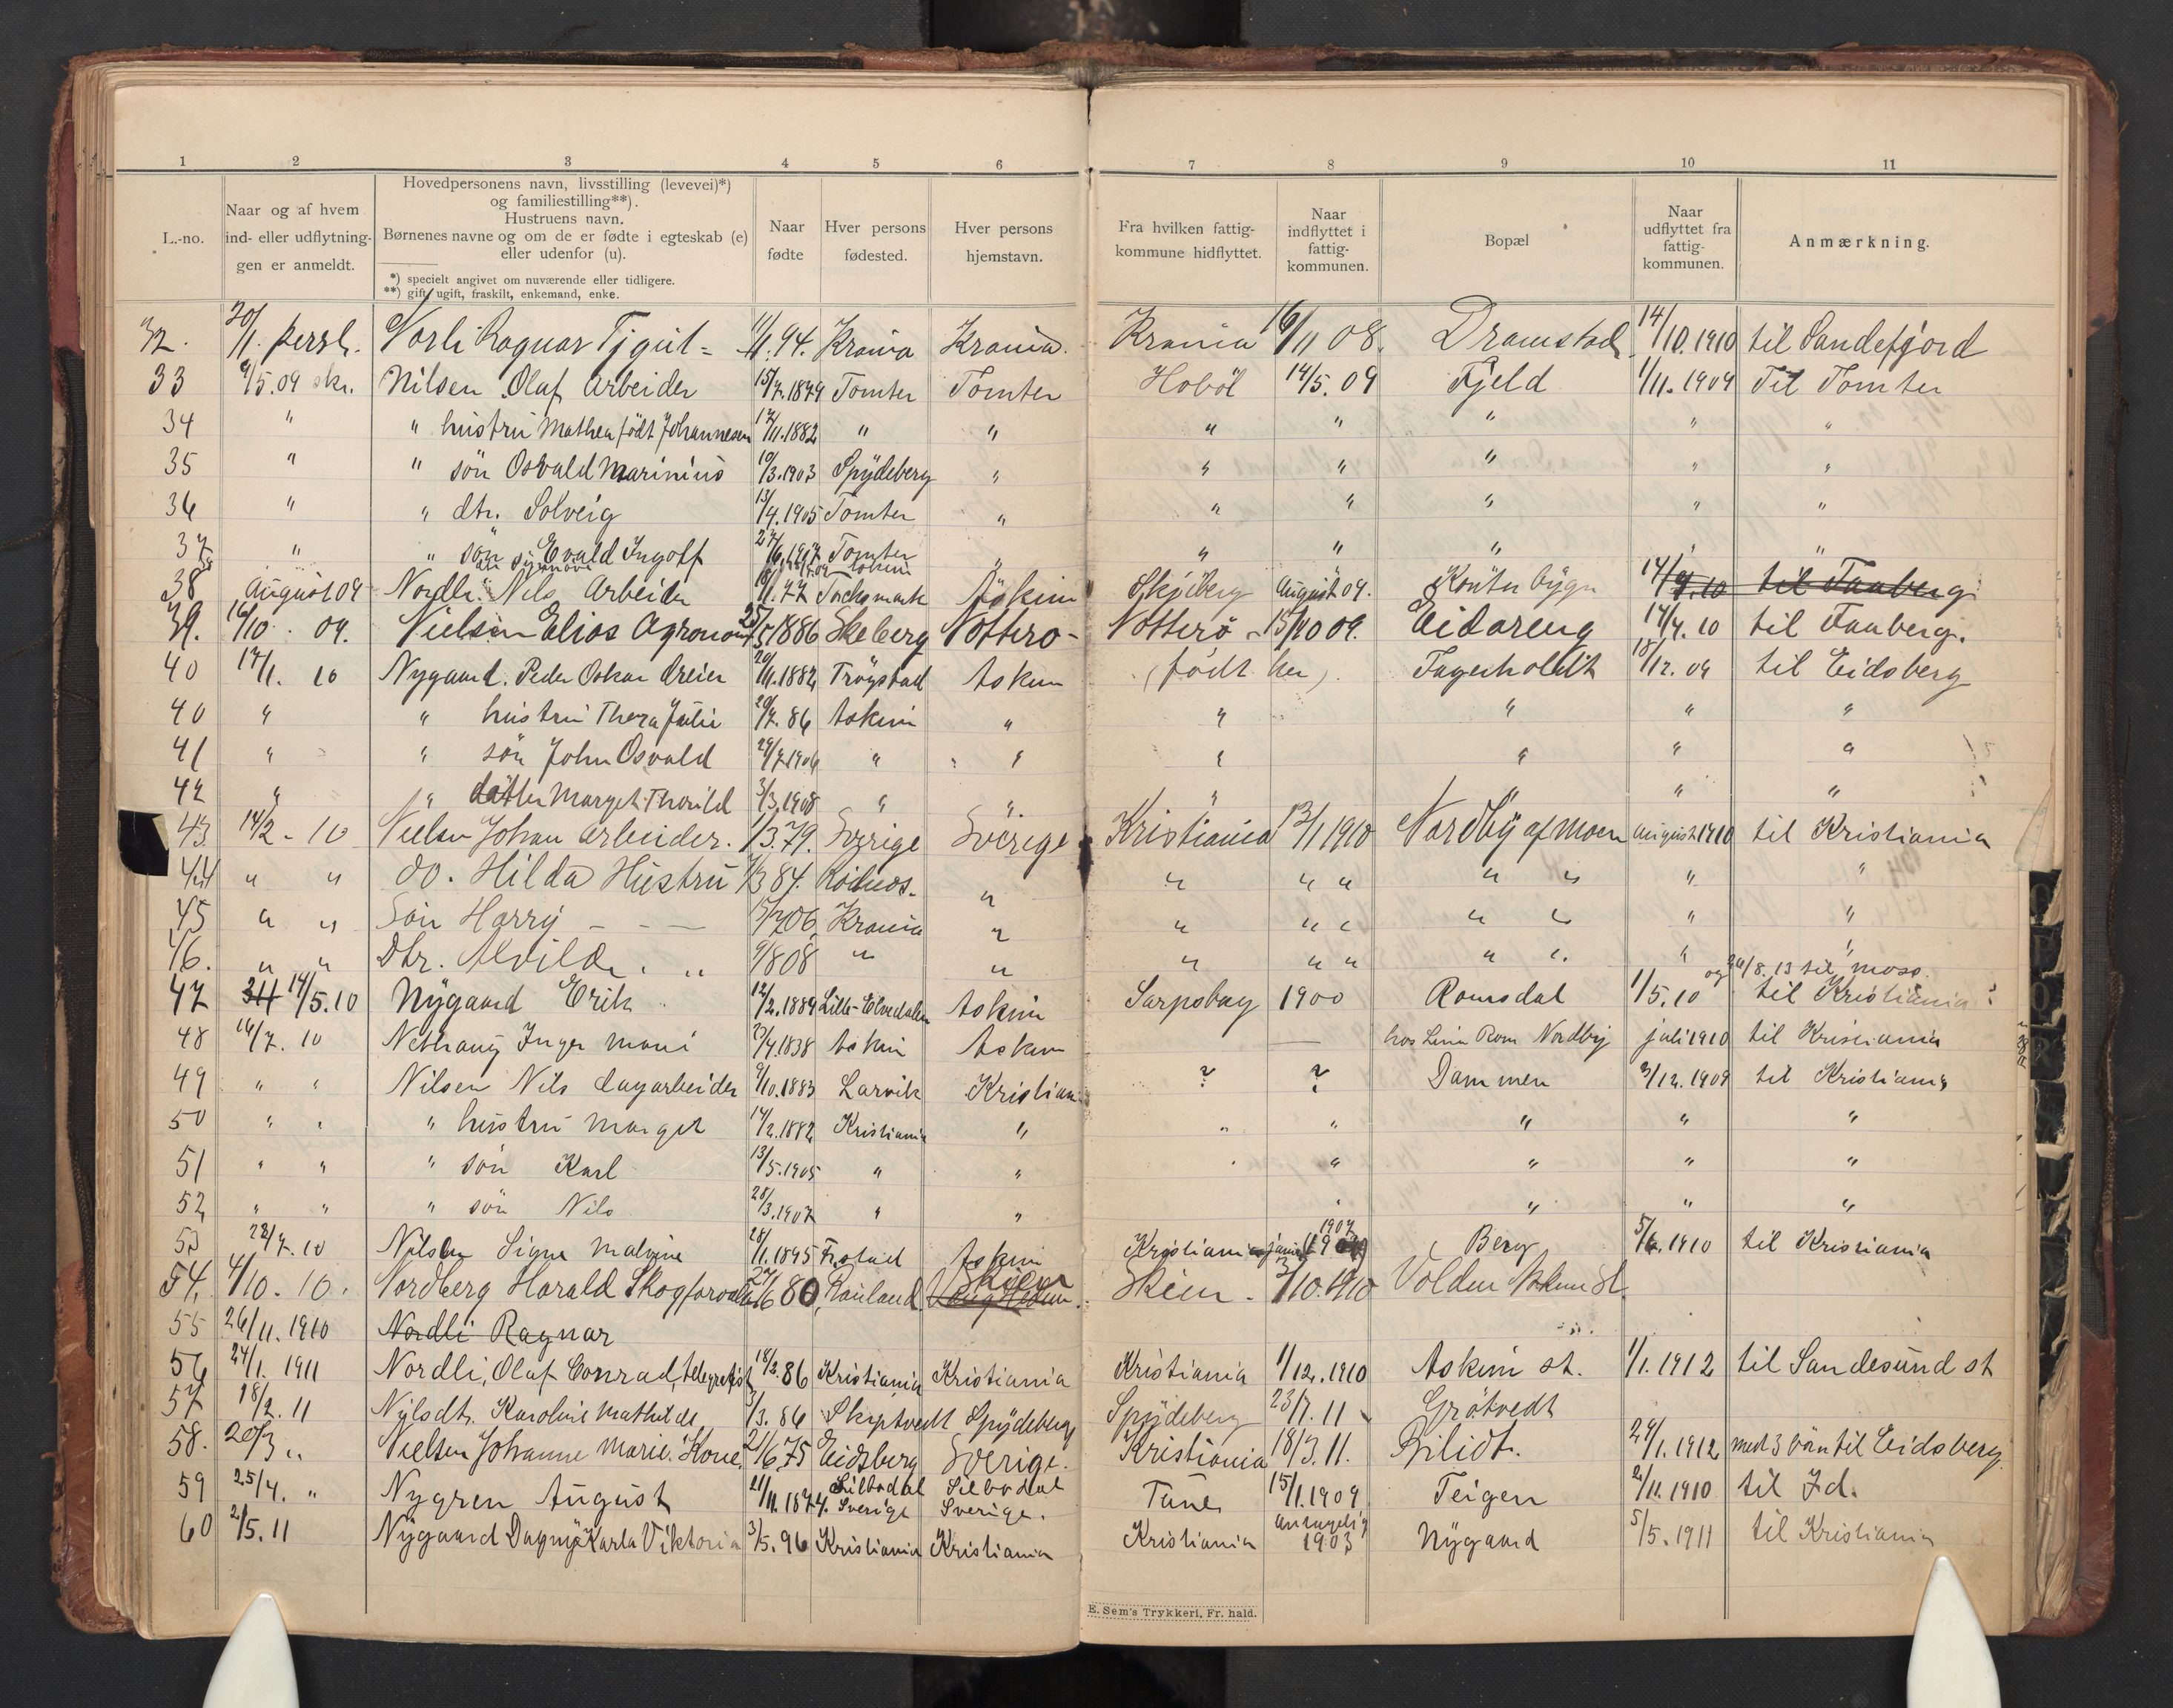 1 2 3 4 5 6 7 8 9 10 11
L.-no.
Naar og af hvem
ind- eller udflytnin-
gen er anmeldt.
Hovedpersonens navn, livsstilling (levevei)*)
og familiestilling**).
Hustruens navn.
Børnenes navne og om de er fødte i egteskab (e)
eller udenfor (u).
*) specielt angivet om nuværende eller tidligere.
**) gift, ugift, fraskilt, enkemand, enke.
Naar
fødte
Hver persons
fødested.
Hver persons
hjemstavn.
Fra hvilken fattig-
kommune hidflyttet.
Naar
indflyttet i
fattig-
kommunen.
Bopæl
Naar
udflyttet fra
fattig-
kommunen.
Anmærkning.
32. 20/1. persl. Norli Ragnar Tjgut= 11/1.94. Krania Krania. Krania 16/11 08. Dramstad 14/10.1910 til Sandefjord
33 9/5.09 skr. Nilsen Olaf Arbeider 15/7.1879 Tomter Tomter Hobøl 14/5.09 Fjeld 1/11.1909 Til Tomter
34 " " hustru Mathea født Johannesen 17/11.1882 " " " " " " "
35 " " søn Osvald Marinius 10/3.1903 Spydeberg " " " " " "
36 " " dtr. Solveig 13/4.1905 Tomter " " " " " "
37 " " søn Evald Ingolf 27/6.1907 Tomter " " " " " "
38 August 09 Nordli Nils Arbeider 18/11.77 Askim Skjeberg August 09. 14/4.10 til Faaberg
39. 16/10. 09. Nielsen Elias Agronom 25/5 1886 Skeberg Nøtterø- Nøtterø - 15/10 09. Eidareng 14/4.10 til Faaberg.
40 17/1. 10 Nygaard. Peder Oskar dreier 20/11.1882 Trøgstad Askim (født her). Fagerholdt 18/12.09 til Eidsberg
40 " " hustru Thora Julie 20/7.86 Askim " " " " "
41 " " søn John Osvald 29/7.1906 " " " " " "
42 " " datter Marget Thorild 3/3.1908 " " " " " "
43. 14/2 - 10 Nielsen Johan arbeider. 1/3.79. Sverige Sverige Kristiania 13/1 1910 Nordby af Moen August 1910 til Kristiania
44 " " do. Hilda Hustru 7/3 84. " " " " " " " "
45 " " Søn Harry - - - 15/7 06, Krania " " " " " " " "
46. " " Dtr. Alvilde. " 9/8 08 " " " " " " " " "
47 34 14/5.10 Nygaard Erik 12/2.1889 Lille-Elvedalen Askim Sarpsborg 1900 Romsdal 1/5.10 og 26/8.13 til Moss. til Kristiania
48 16/7. 10 Inger Marie 23/4.1838 Askim Askim — hos Linn Rom Nordby juli 1910 til Kristiania
49 " " Nilsen Nils dagarbeider 9/10.1883 Larvik Kristiania ? ? Dammen 3/12.1909 til Kristiania
50 " " " hustru Marget 14/2.1882 Kristiania " " " " " "
51 " " " søn Karl 13/5.1905 " " " " " " "
52 " " " søn Nils 28/3.1907 " " " " " "
53 28/7.10 Nilsen Signe Malvine 28/11.1895 Fr.stad Askim Kristiania juni 1907 Berg 5/6.1910 til Kristiania
54. 4/10. 10. Nordberg Harald Skogforvalter 27/6 80 Rauland Skien Skien - 3/10.1910 Volden Askim St.
55 26/11.1910 Nordli Ragnar
56 24/1. 1911 Nordli, Olaf Conrad, telegrafist 18/2.86 Kristiania Kristiania Kristiania 1/12.1910 Askim st. 1/1.1912 til Sandesund st
57 18/2.11 Nilsdtr. Karoline Mathilde 3/3.86 Skiptvedt Spydeberg Spydeberg 23/7.11 Grøtvedt
58. 20/3 " Nielsen Johanne Marie. Kone. 21/6.75 Eidsberg Sverige. Kristiania 18/3.11. Bilidt. 24/1.1912 med 3 børn til Eidsberg
59 25/4. " Nygren August 21/11.1874. Silbodal Sverige Silbodal Sverige. Tune 15/1.1909 Teigen 2/11.1910 til Id.
60 2/5.11 Nygaard Dagny Karla Viktoria 3/5.96 Kristiania Kristiania Kristiania antagelig 1903 Nygaard 5/5.1911 til Kristiania
E. Sem's Trykkeri, Fr. hald.